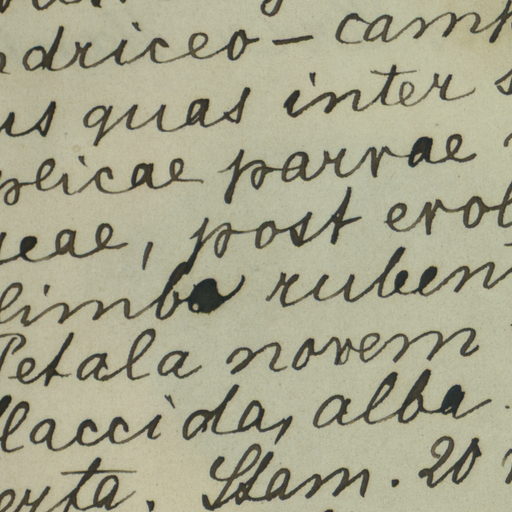 driceo - camp
us quas inter s
plicae parvae
eae, post evol
limbo rubent
Petala novem
flaccida, alba
erta. Stam. 20